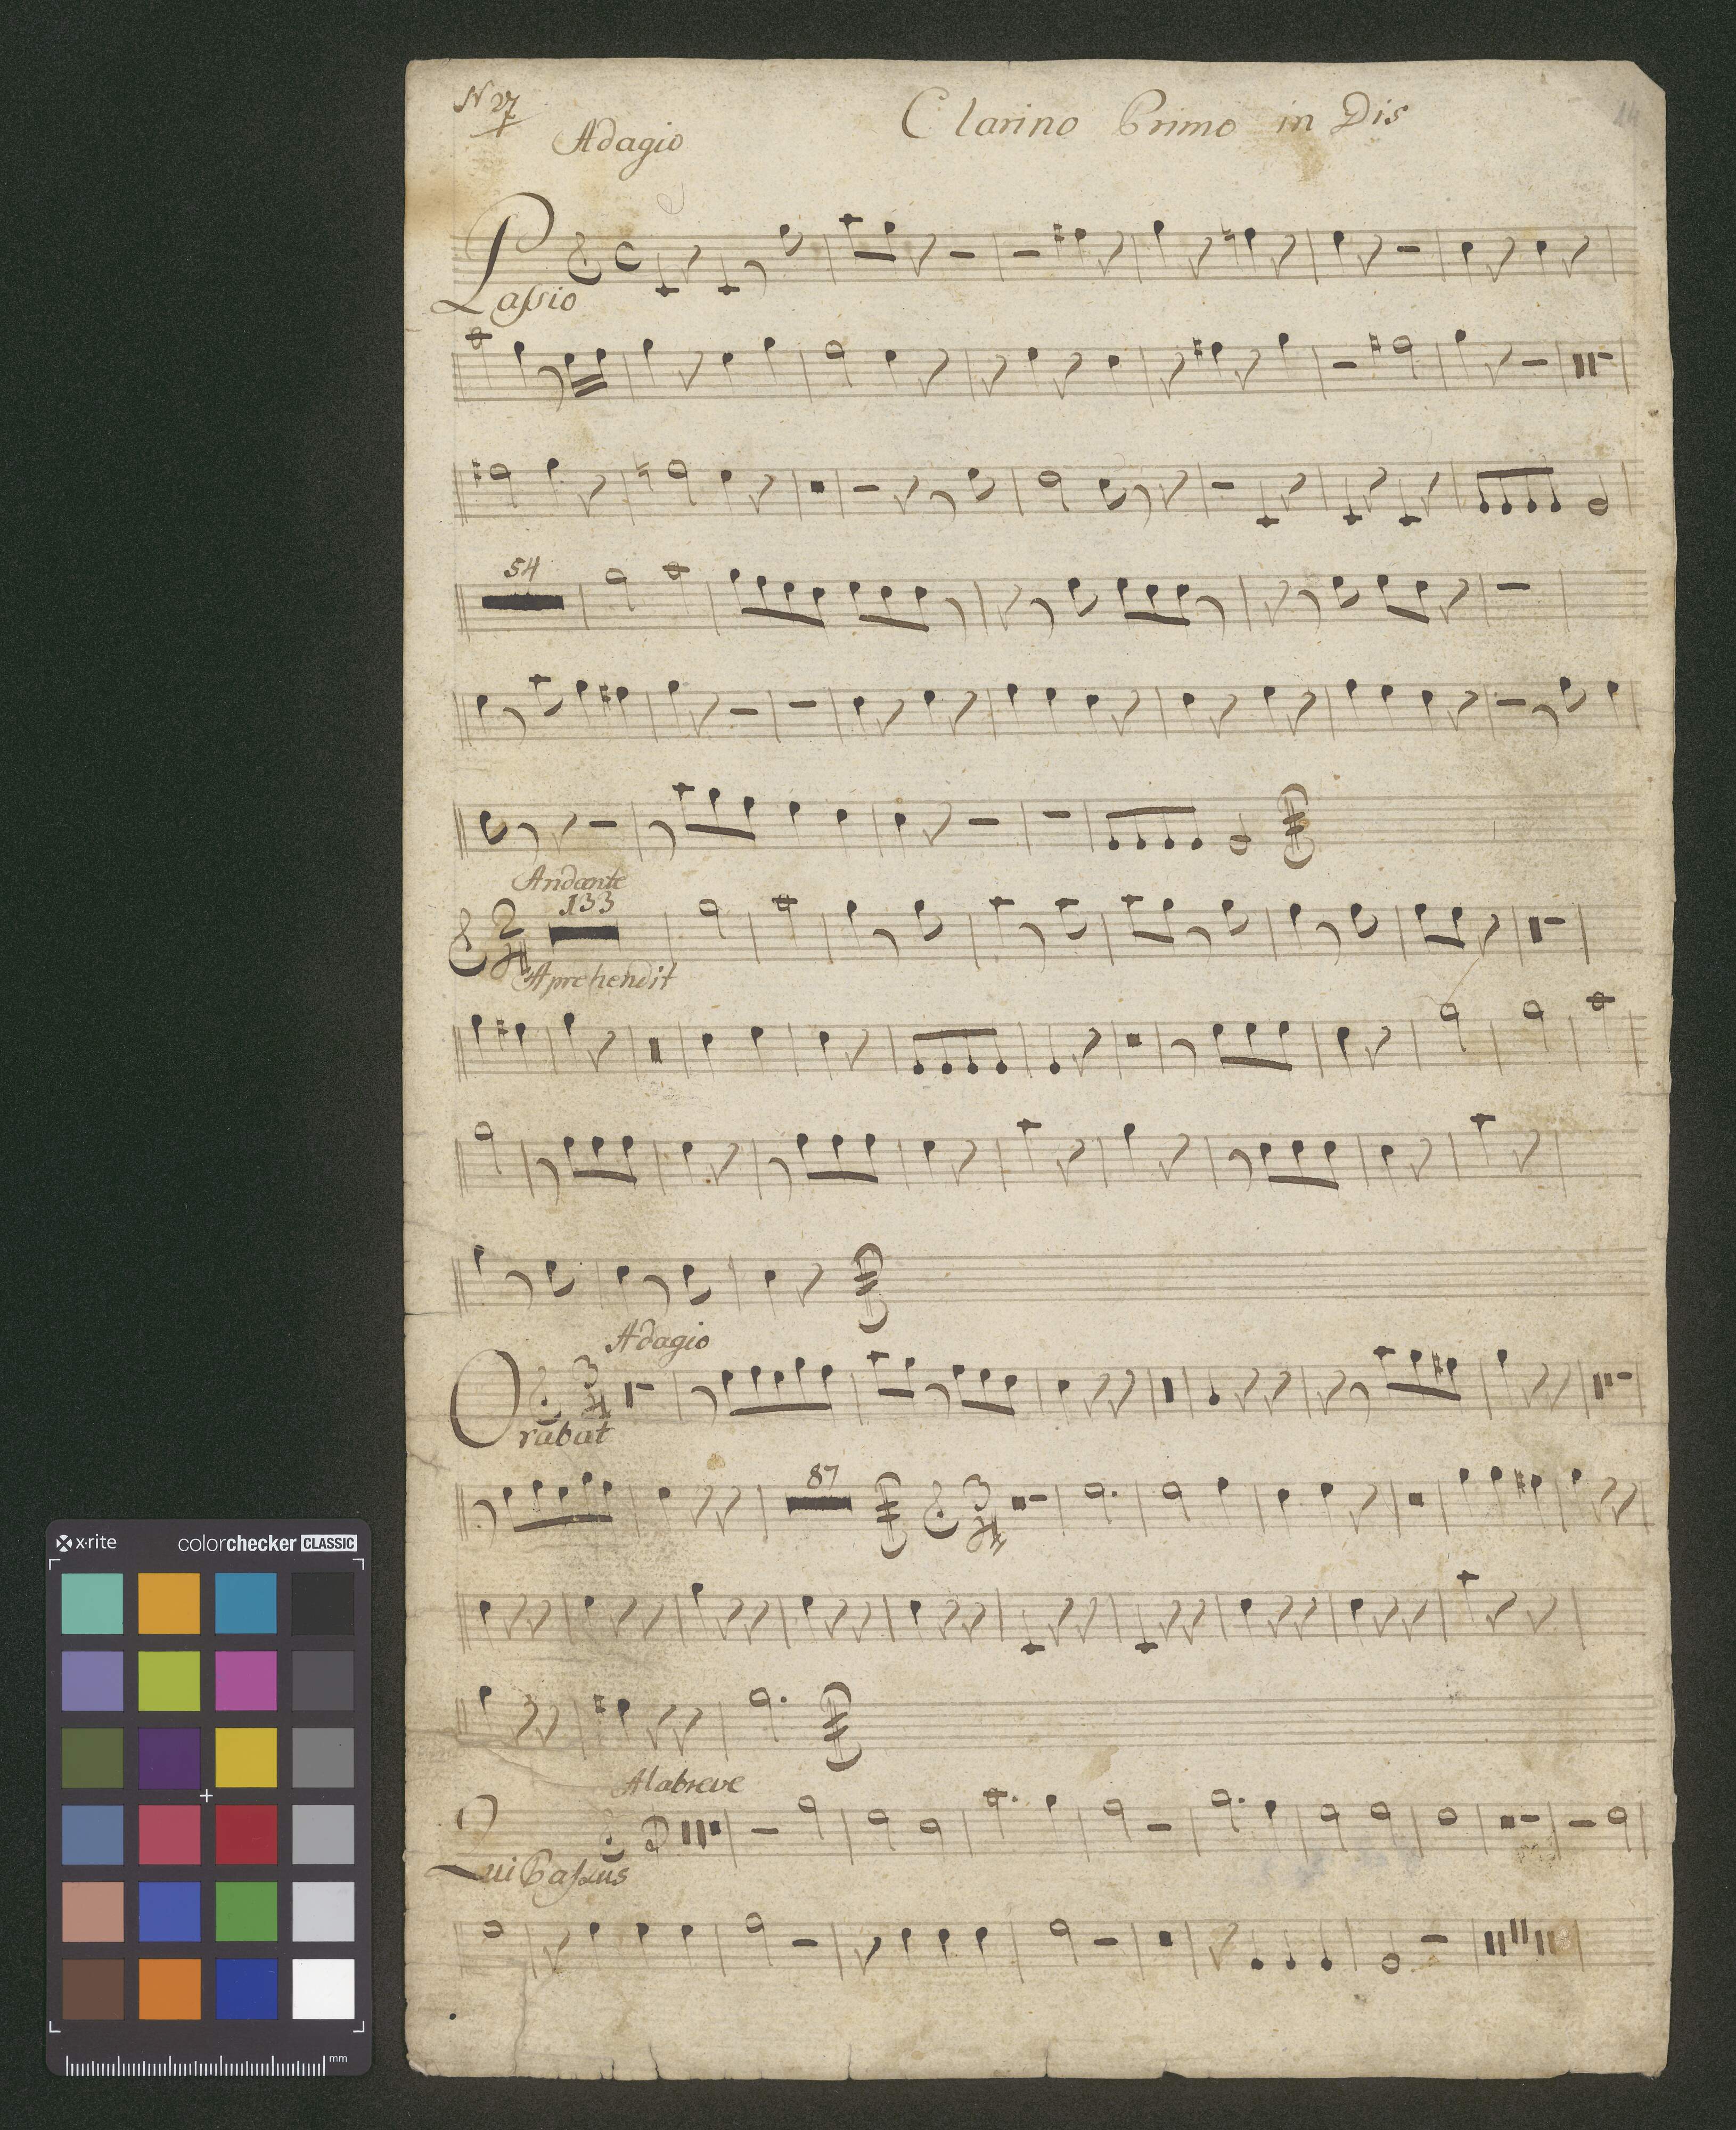 N 27
Clarino Primo in Dis
14
Adagio
Passio
54
Andante
133
2
4
Aprehendit
Adagio
3
4
Orabat
87
3
4
Alabreve
Qui Passus
x·rite colorchecker CLASSIC
mm